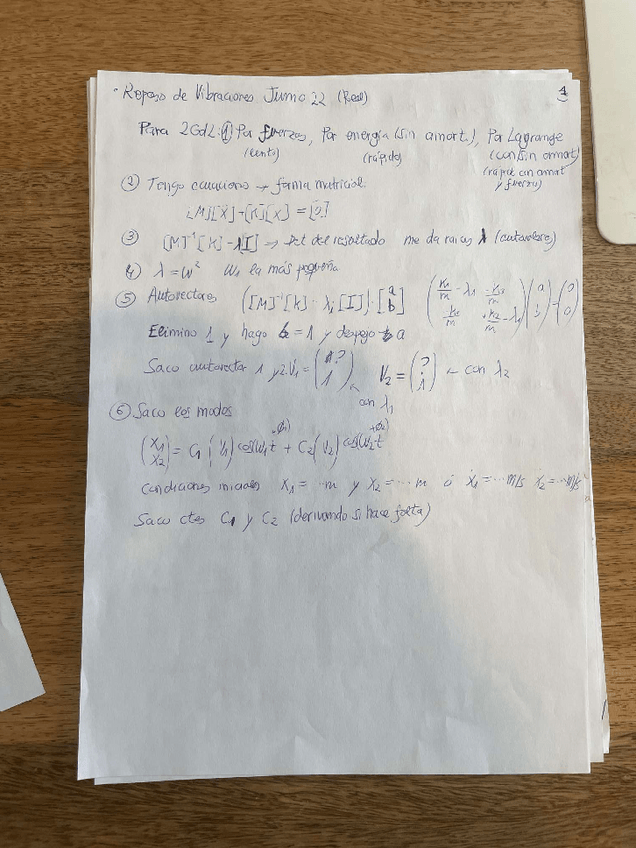 · Repaso de Vibraciones Junio 22 (Real)
1
Para 2GdL: ① Por fuerzas, Por energía (sin amort.), Por Lagrange
(lento) (rápido) (con/sin amort)
(rápido con amort
y fuerza)
② Tengo ecuaciones → forma matricial.
[M][Ẍ]+[K][X] = [0]
③ [M]⁻¹[K]-λ[I] → Det del resultado me da raices λ (autovalores)
4) λ = ω² ω₁ la más pequeña
⑤ Autovectores ([M]⁻¹[K] - λi[I])·[a b] (K1/m - λ1
Elimino 1 y hago b = 1 y despejo a
Saco autovector 1 y 2. V1 = (? 1) con λ1 V2 = (? 1) ← con λ2
⑥ Saco los modos
(X1 X2) = C1 (V1) cos(ω1t +Ø1) + C2 (V2) cos(ω2t +Ø2)
Condiciones iniciales X1 = ··· m y X2 = ··· m ó ẋ1 = ··· m/s ẋ2 = ··· m/s
Saco ctes C1 y C2 (derivando si hace falta)